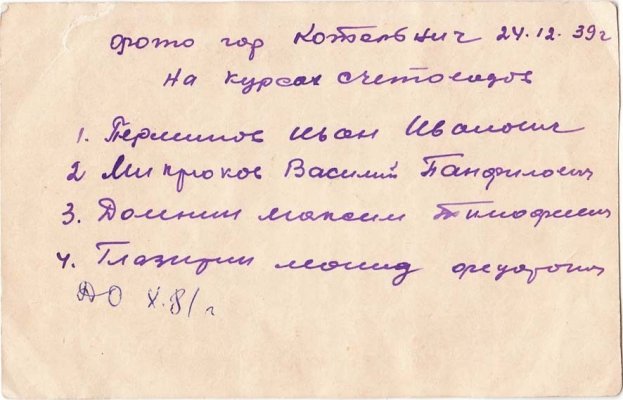 фото гор Котельнич 24.12.39г
На курсах счетоводов
1. Перминов Иван Иванович
2 Мипрюков Василий Панфилович
3. Домнин Максим Тимофееич
4. Глазырин леонид федорович
ДО X.81 г